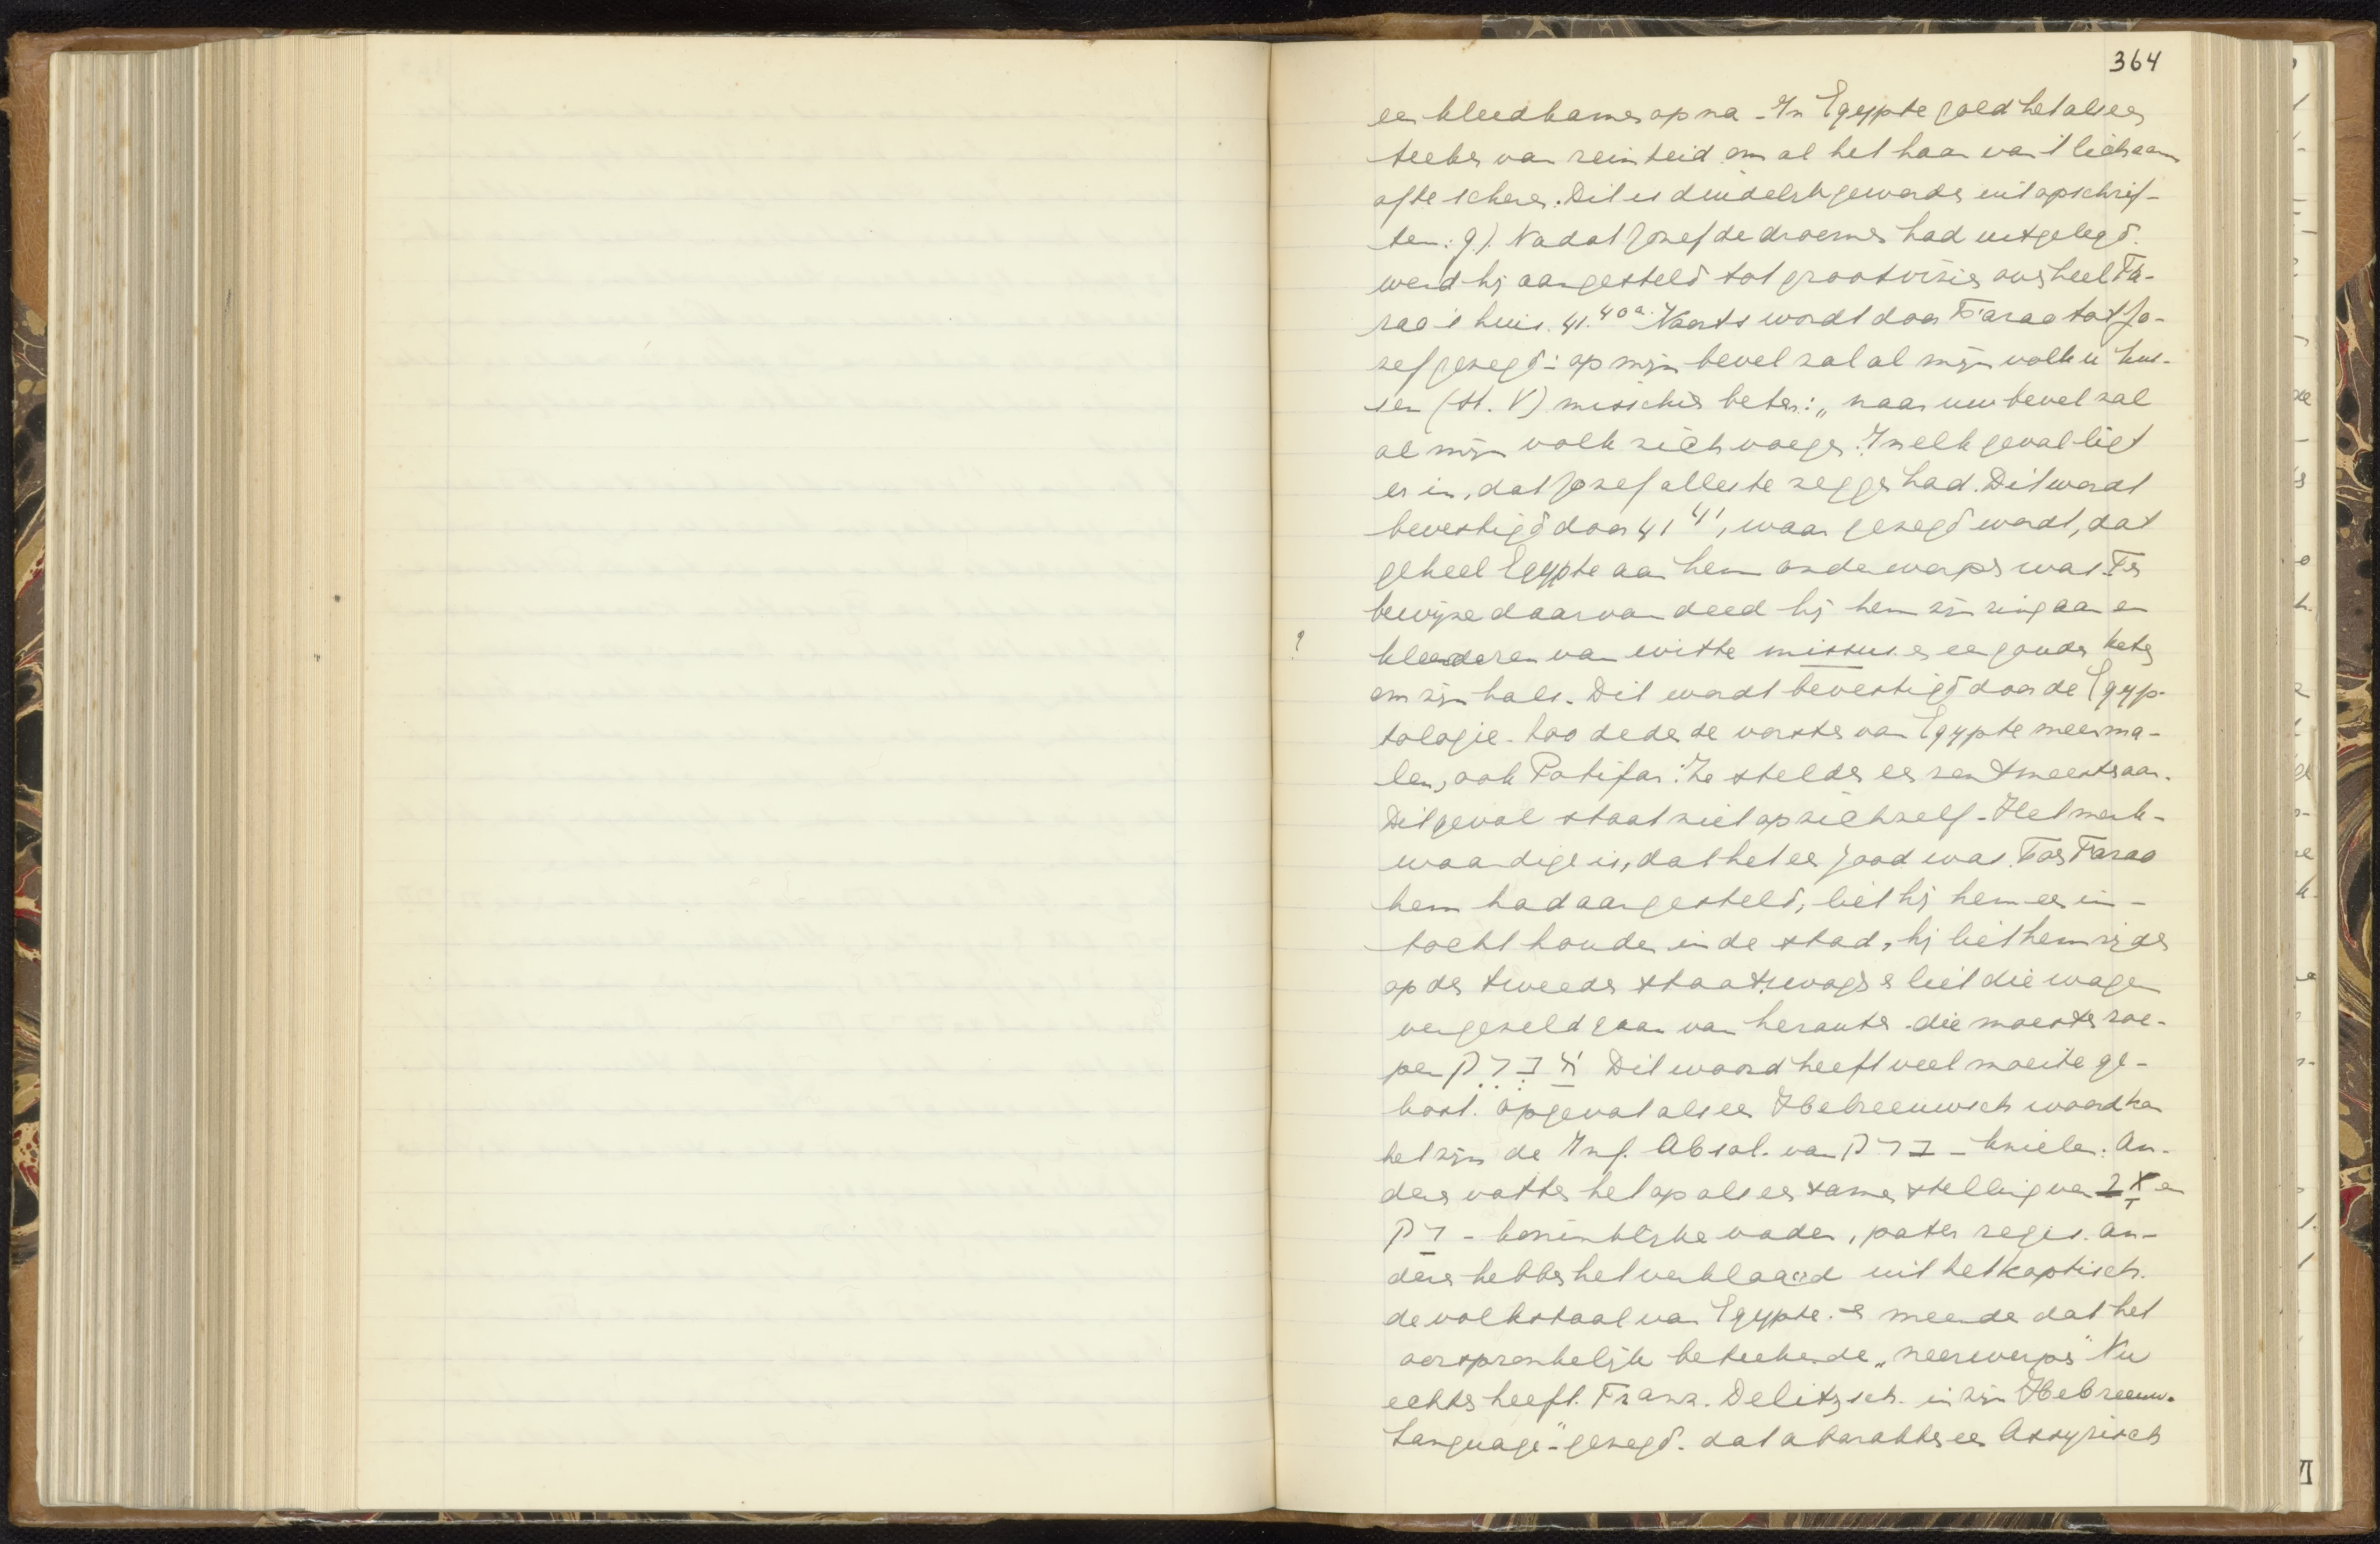 364
een kleedkamer op na - In Egypte gold het als een
teeken van reinheid om al het haar van 't lichaam
af te scheren. Dit is duidelijk geworden uit opschrif-
ten. g). Nadat Jozef de droomen had uitgelegd.
werd hij aangesteld tot grootvizier over heel Fa-
rao's huis. 41.40a. Voorts wordt door Farao tot Jo-
zef gezegd: op mijn bevel zal al mijn volk u kus-
sen (st. V) misschien beter: „naar uw bevel zal
al mijn volk zich voegen. In elk geval ligt
er in, dat Jozef alles te zeggen had. Dit wordt
bevestigd door 41 41, waar gezegd wordt, dat
geheel Egypte aan hem onderworpen was. Ten
bewijze daarvan deed hij hem zijn ring aan en
? kleederen van witte missus en een gouden keten
om zijn hals. Dit wordt bevestigd door de Egyp-
tologie. Zoo deden de vorsten van Egypte meerma-
len, ook Potifar. Ze stelden een rentmeester aan.
Dit geval staat niet op zichzelf - Het merk-
waardige is, dat het een Jood was. Toen Farao
hem had aangesteld, liet hij hem een in-
tocht houden in de stad, hij liet hem rijden
op den tweeden staatswagen en liet die wagen
vergezeld gaan van herauten die moesten roe-
pen אַבְרֵךְ Dit woord heeft veel moeite ge-
kost. Opgevat als een Hebreeuwsch woord kan
het zijn de Inf. Absol. van ברך - knielen. An-
deren vatten het op als een samenstelling van אָב en
רַךְ - koninklijke vader, pater regis. An-
deren hebben het verklaard uit het koptisch.
de volkstaal van Egypte. en meenden dat het
oorspronkelijk beteekende „neerwerpen" Nu
echter heeft. Franz. Delitzsch. in zijn Hebreeuw.
Language" - gezegd. dat abarakku een Assyrisch